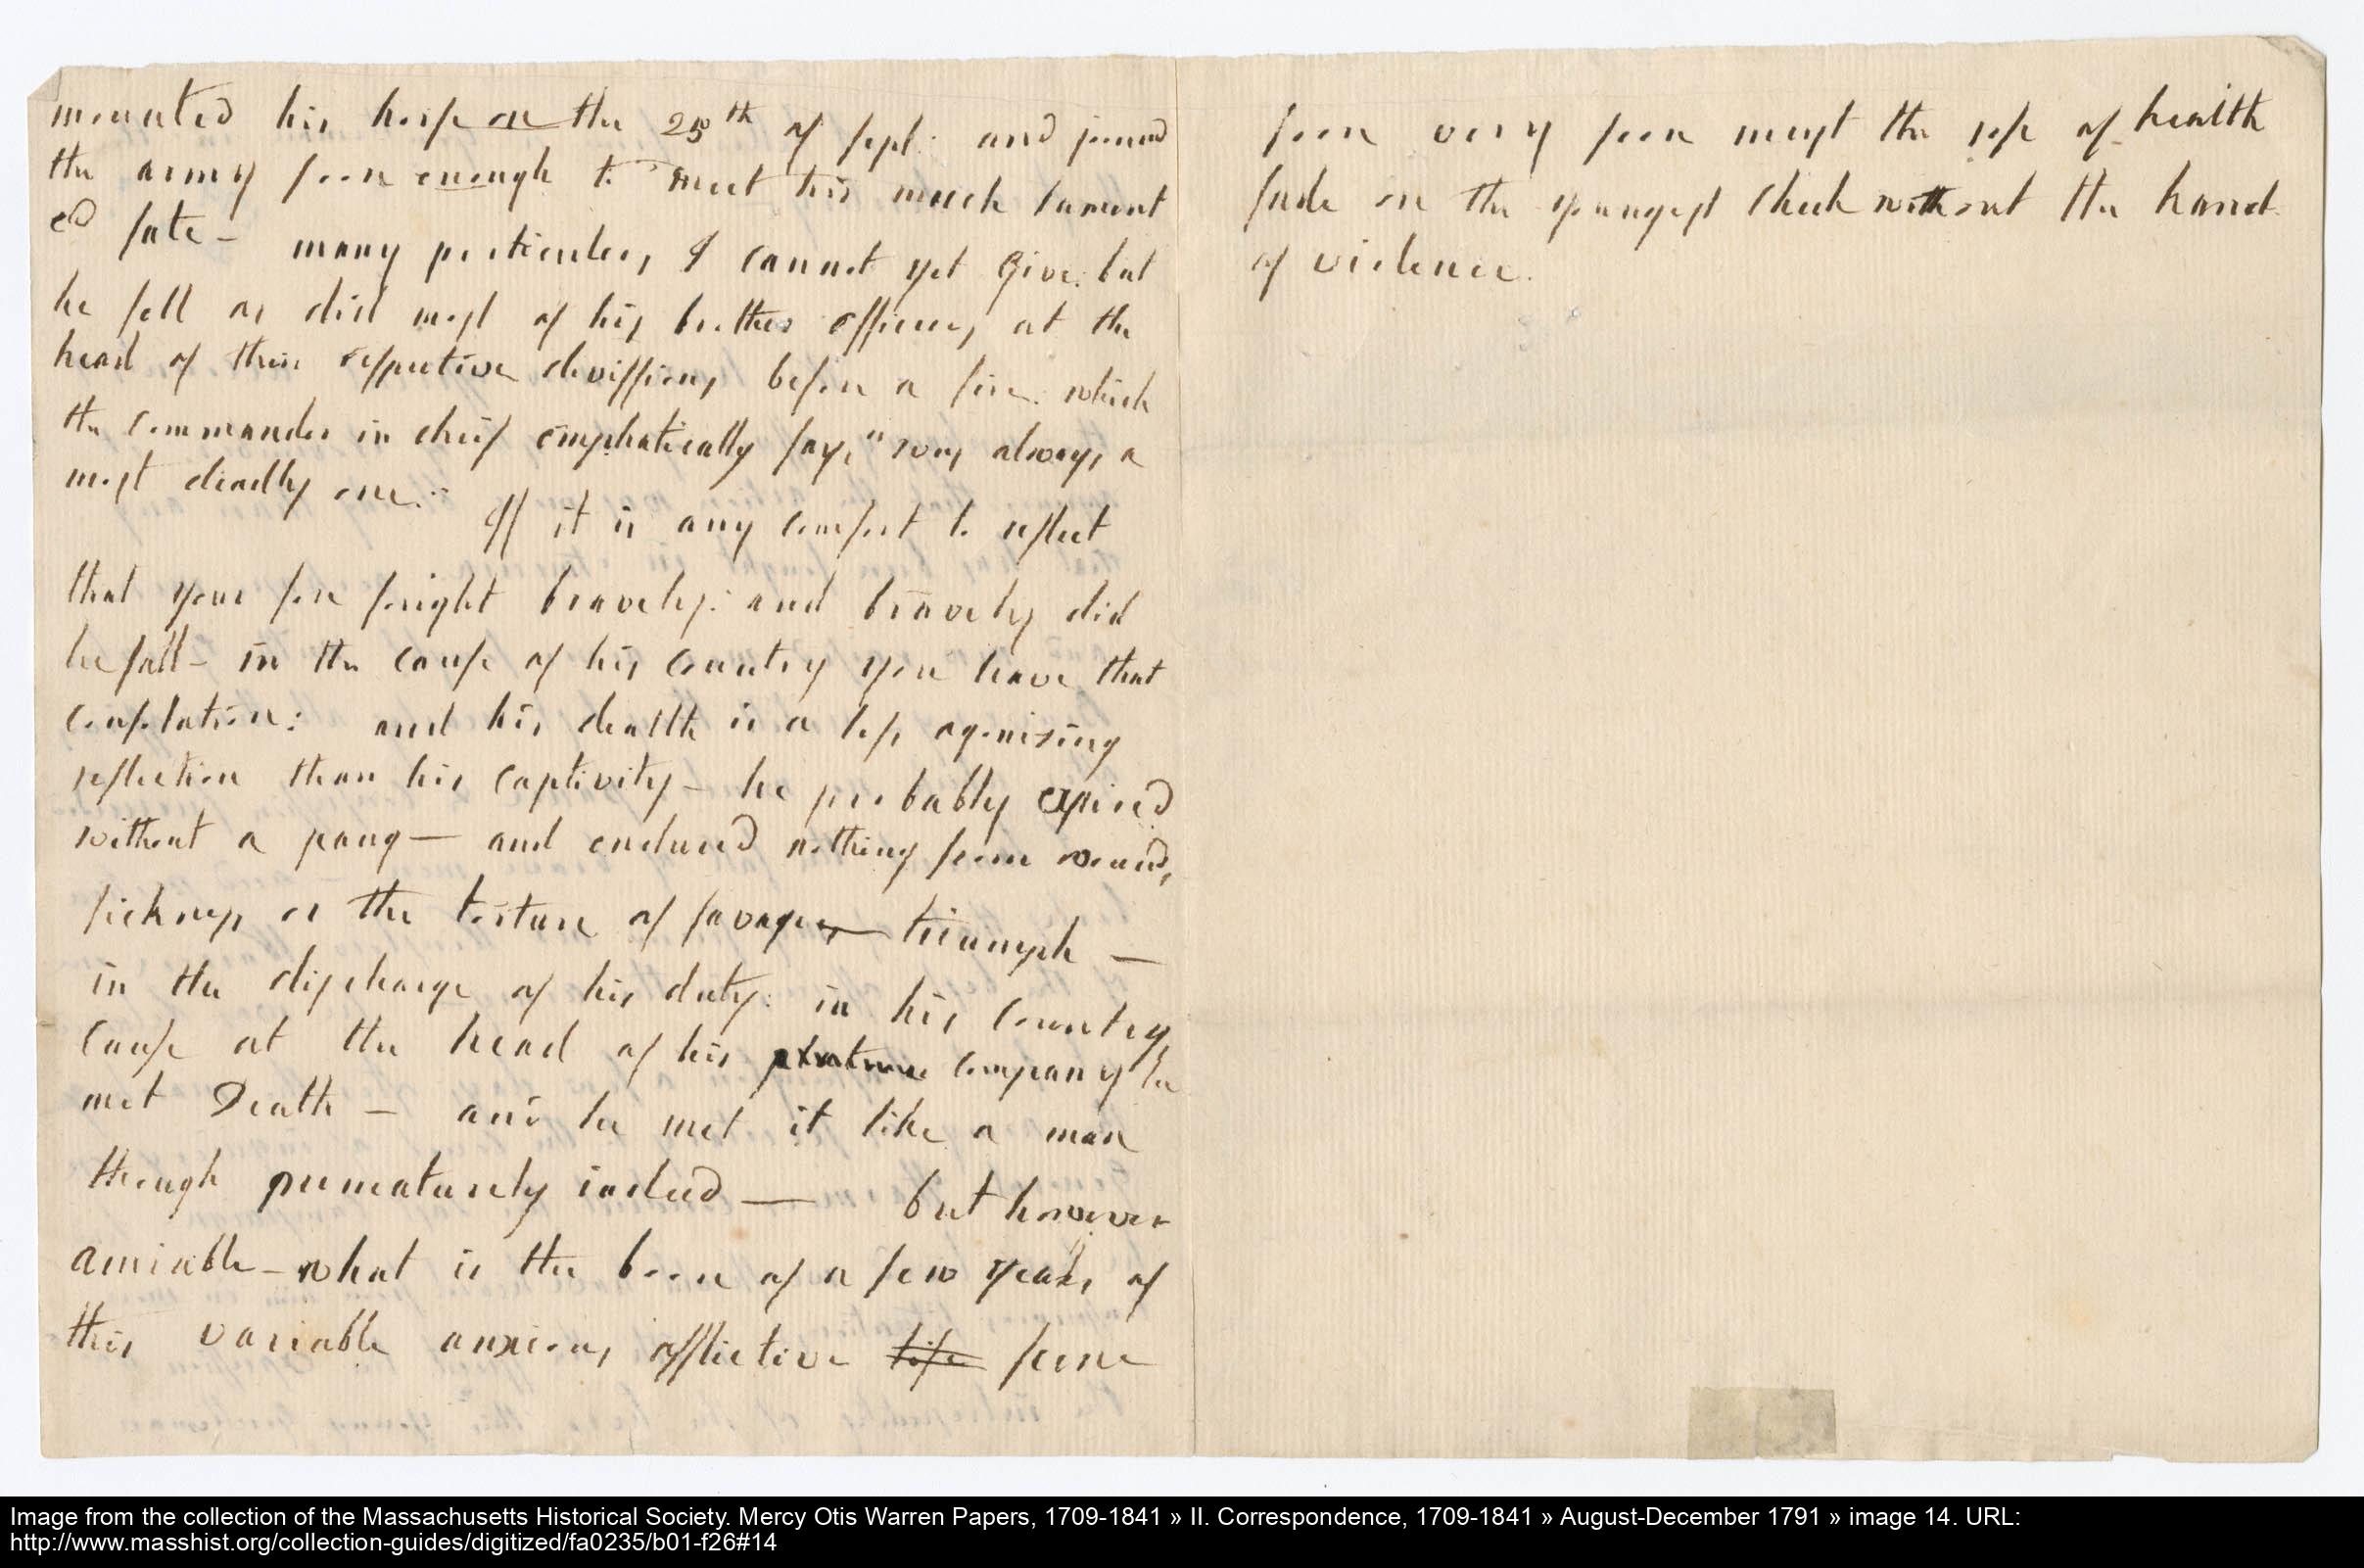 mounted his horse on the 25th of sept. and joined
the army soon enough to meet his much lament
ed fate – many particulars I cannot yet give. but
he fell as did most of his brother officers, at the
head of their respective devissions, before a fire. which
the commander in cheif emphatically says, " was always a
most deadly one."
If it is any comfort to reflect
that your son fought bravely: and bravely did
he fall – in the cause of his Country you have that
consolation: and his death is a less agonising
reflection than his captivity – he probably expired
without a pang — and endured nothing from wounds,
sickness, or the torture of savage triumph —
in the discharge of his duty: in his Country,
cause at the head of his company he
met Death – and he met it like a man
though prematurely indeed — but however
amiable – what is the boon of a few years, of
this variable anxious, afflictive life scene
soon very soon must the rose of health
fade on the youngest cheek without the hand
of violence.
Image from the collection of the Massachusetts Historical Society. Mercy Otis Warren Papers, 1709-1841 » II. Correspondence, 1709-1841 » August-December 1791 » image 14. URL:
http://www.masshist.org/collection-guides/digitized/fa0235/b01-f26#14